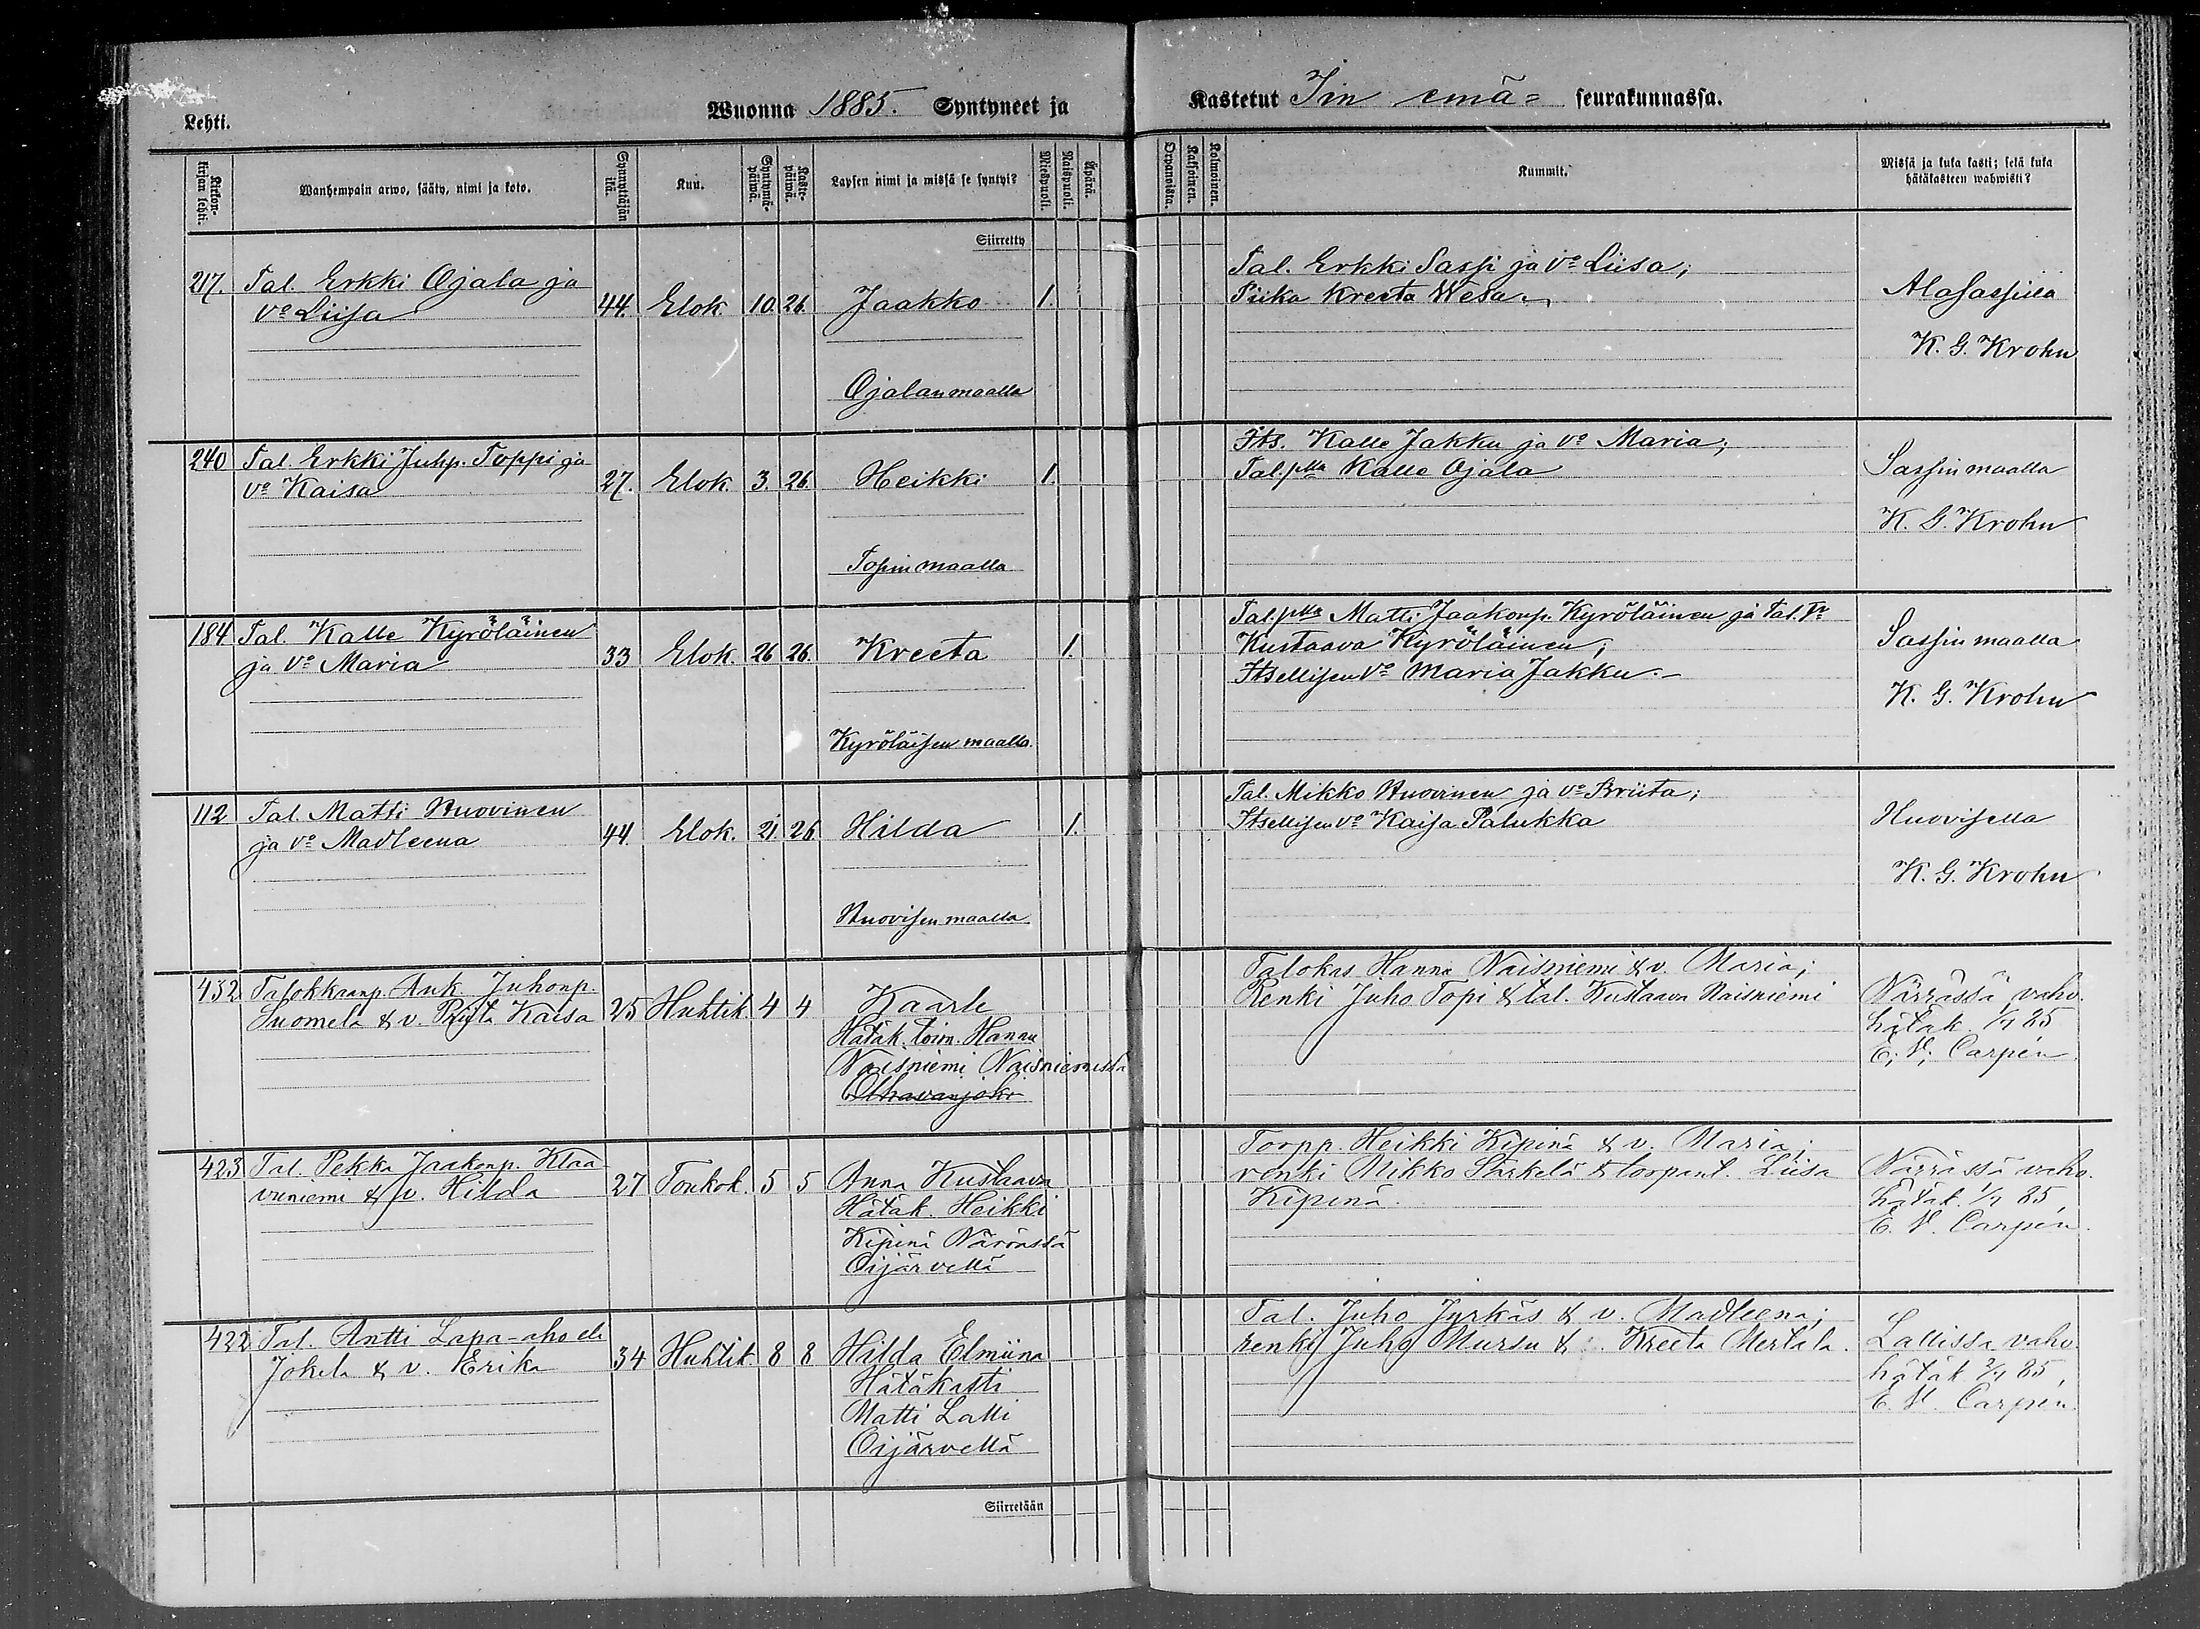 Lehti.
Wuonna 1885. Syntyneet ja
Kastetut Iin emä= seurakunnassa.
Kirkon-kirjan lehti.
Wanhempain arwo, sääty, nimi ja koto.
Synnyttäjän ikä.
Kuu.
Syntymä-päiwä.
Kaste-päiwä.
Lapsen nimi ja missä se syntyi?
Miespuoli.
Naispuoli.
Äpärä.
Orpanoista.
Kaksoinen.
Kolmoinen.
Kummit.
Missä ja kuka kasti; sekä kuka
hätäkasteen wahwisti?
Siirretty
217. Tal. Erkki Ojala ja
vo Liisa 44. Elok. 10. 26. Jaakko 1.
Ojalan maalla
Tal. Erkki Sassi ja vo Liisa;
Piika Kreeta Wesa.
Alasassilla
K. G. Krohn
240 Tal. Erkki Juhp. Toppi ja
vo Kaisa 27. Elok. 3. 26. Heikki 1.
Topin maalla
Its. Kalle Jakku ja vo Maria;
Tal. Kalle Ojala
Sassin maalla
K. G. Krohn
184 Tal. Kalle Kyröläinen
ja vo Maria 33 Elok. 26 26. Kreeta 1.
Kyröläisen maalla.
Tal. Matti Jaakonp. Kyröläinen ja tal.
Kustaava Kyröläinen;
Itsellisen vo Maria Jakku.
Sassin maalla
K. G. Krohn
112 Tal. Matti Huovinen
ja vo Madleena 44. Elok. 21 26 Hilda 1.
Huovisen maalla
Tal. Mikko Huovinen ja vo Briita;
Itsellisen vo Kaisa Palukka
Huovisella
K. G. Krohn
432 Talokkaanp. Ank. Juhonp.
Suomela & v. Priita Kaisa 25 Huhtik. 4 4 Kaarle
Hätäk. toim. Hannu
Naisniemi Naisniemessä
Olhavanjoki
Talokas Hannu Naisniemi & v. Maria;
Renki Juho Topi & tal. Kustaava Naisniemi
Närrässä vahv.
hätäk. 1/7 85
E. V. Carpén
423 Tal. Pekka Jaakonp. Klaa
vuniemi & v. Hilda 27 Toukok. 5 5 Anna Kustaava
Hätäk. Heikki
Kipinä Närrässä
Oijärvellä
Torpp. Heikki Kipinä & v. Maria;
renki Mikko Särkelä & torpant. Liisa
Kipinä.
Närrässä vahv.
hätäk. 1/7 85,
E. V. Carpén.
422 Tal. Antti Lapa-aho eli
Jokela & v. Erika 34 Huhtik. 8 8 Hilda Elmiina
Hätäkasti
Matti Lalli
Oijärvellä
Tal. Juho Jyrkäs & v. Madleena;
renki Juho Mursu & Kreeta Mertala.
Lallissa vahv.
hätäk. 2/7 85,
E. V. Carpén.
Siirretään